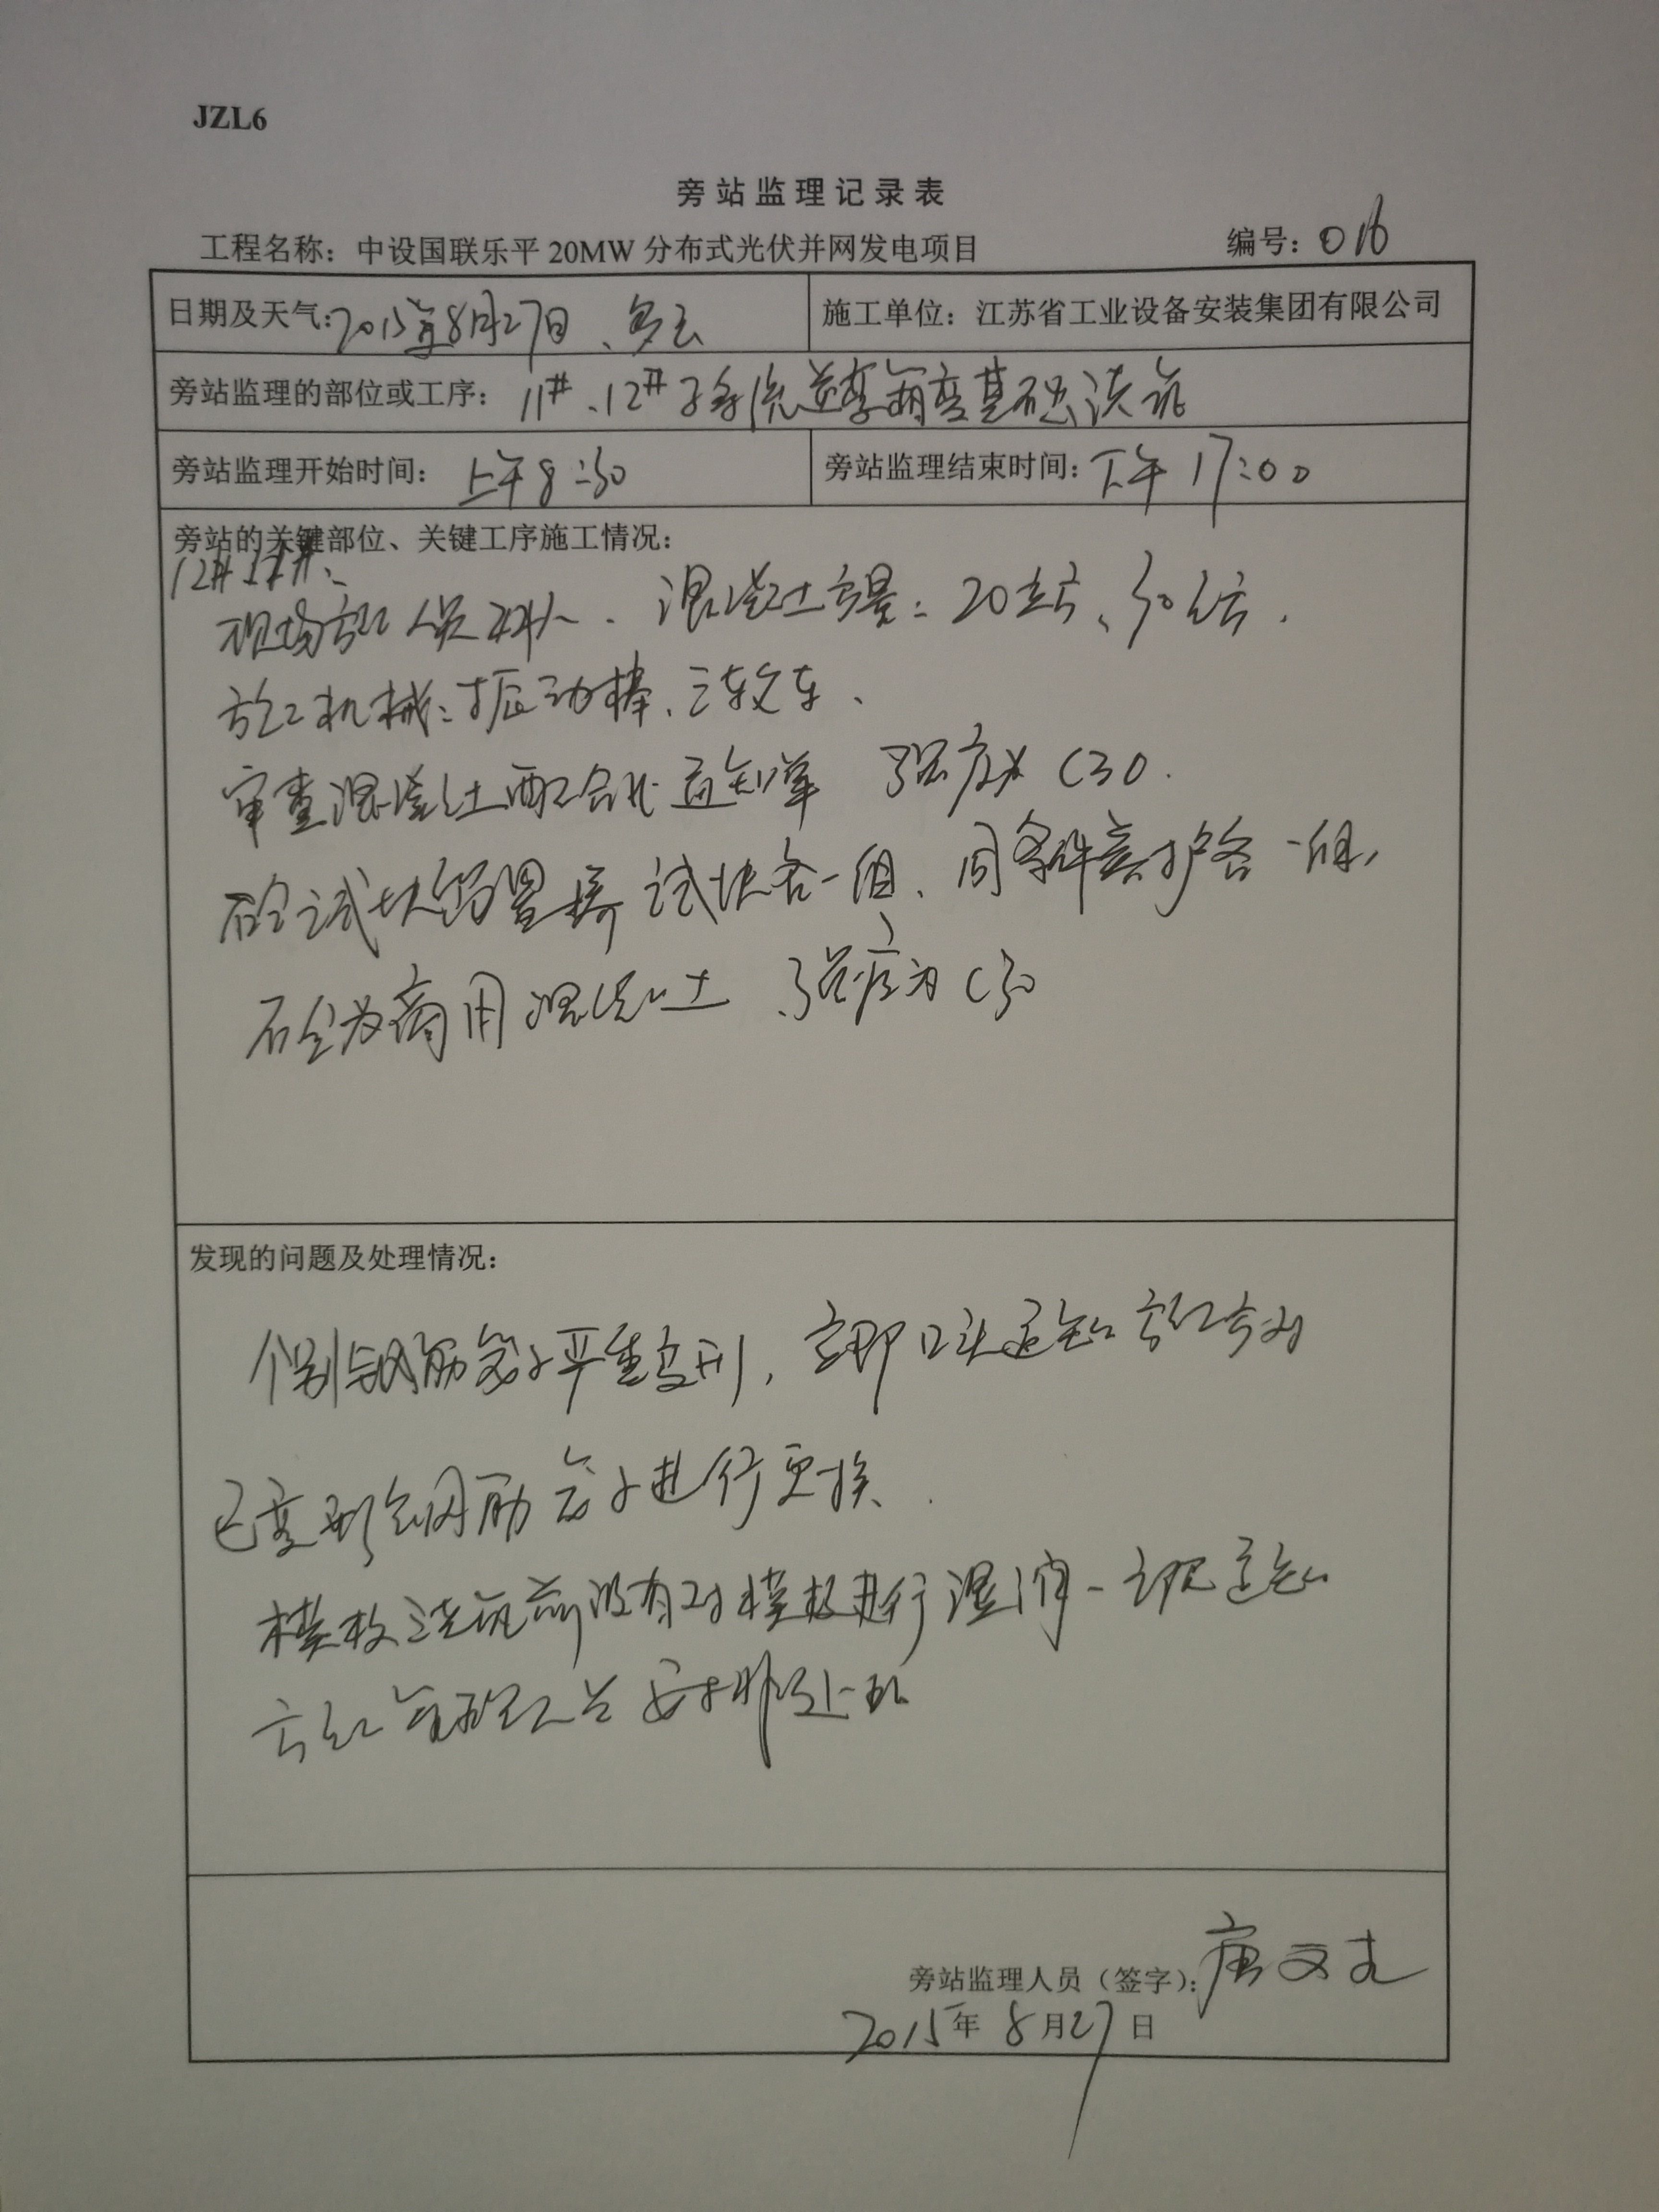 JZL6
旁站监理记录表
工程名称：中设国联乐平20MW分布式光伏并网发电项目 编号：016
日期及天气：2015年8月27日、多云 施工单位：江苏省工业设备安装集团有限公司
旁站监理的部位或工序：11#、12#子系统逆变箱变基础浇筑
旁站监理开始时间：上午8:30 旁站监理结束时间：下午17:00
旁站的关键部位、关键工序施工情况：
12# 11#：
现场施工人员 混凝土方量：20立方、30立方.
施工机械：振动棒、泵车、
审查混凝土配合比通知单 强度为C30.
砼试块留置 试块各一组、同条件养护各一组，
砼为商用混凝土、强度为C30
发现的问题及处理情况：
个别钢筋笼子严重变形，立即口头通知施工方对
已变形钢筋笼子进行更换.
模板浇筑前没有对模板进行湿润-立即通知
施工管理人员安排处理
旁站监理人员（签字）：唐文
2015年8月27日